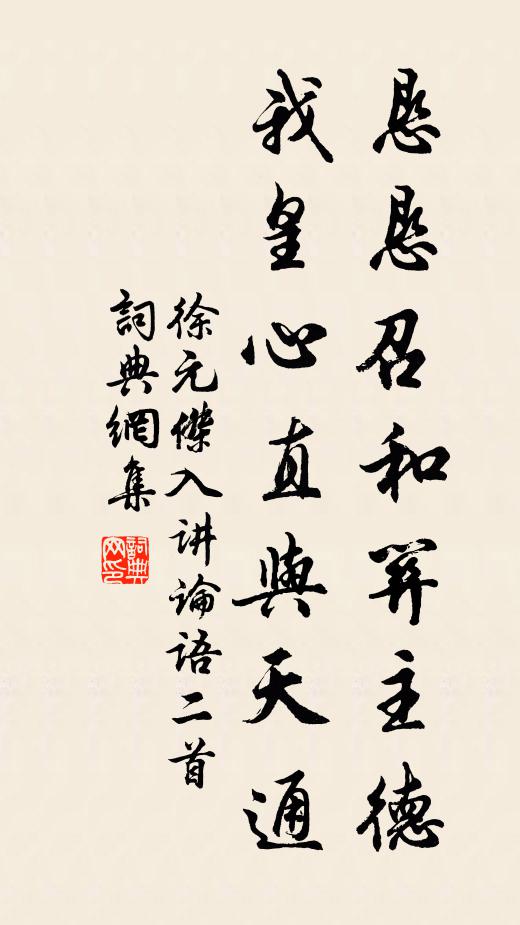 恳恳召和關主德
我皇心直與天通
徐元傑入讲論语二首
詞典網集
詞典网印